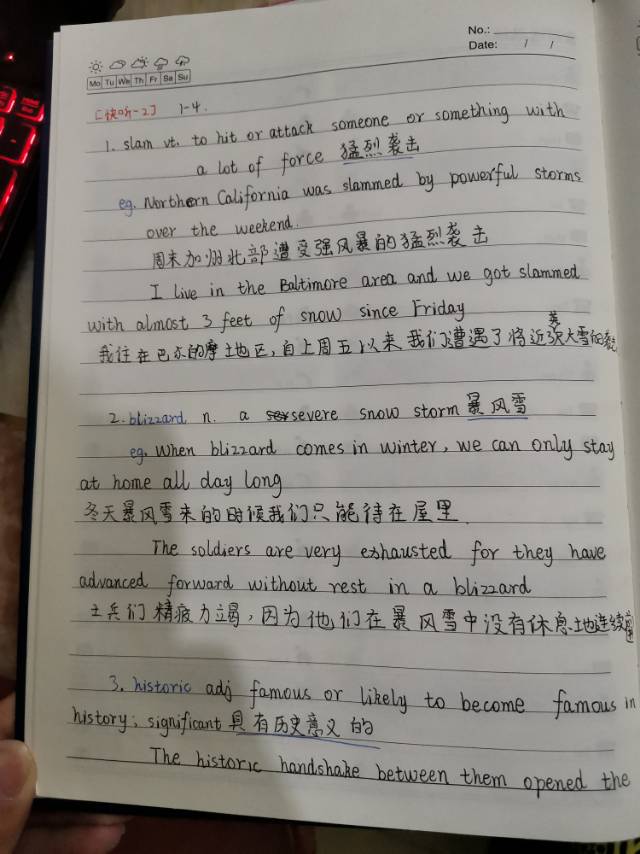 No.:
Date: / /
Mo Tu We Th Fr Sa Su
[快听-2] 1-4.
1. slam vt. to hit or attack someone or something with
a lot of force 猛烈袭击
eg. Northern California was slammed by powerful storms
over the weekend.
周末加州北部遭受强风暴的猛烈袭击
I live in the Baltimore area and we got slammed
with almost 3 feet of snow since Friday
我住在巴尔的摩地区,自上周五以来我们遭遇了将近3英大雪的袭击
2. blizzard n. a severe snow storm 暴风雪
eg. When blizzard comes in winter, we can only stay
at home all day long
冬天暴风雪来的时候我们只能待在屋里.
The soldiers are very exhausted for they have
advanced forward without rest in a blizzard
士兵们精疲力竭,因为他们在暴风雪中没有休息地连续
3. historic adj famous or likely to become famous in
history; significant 具有历史意义的
The historic handshake between them opened the